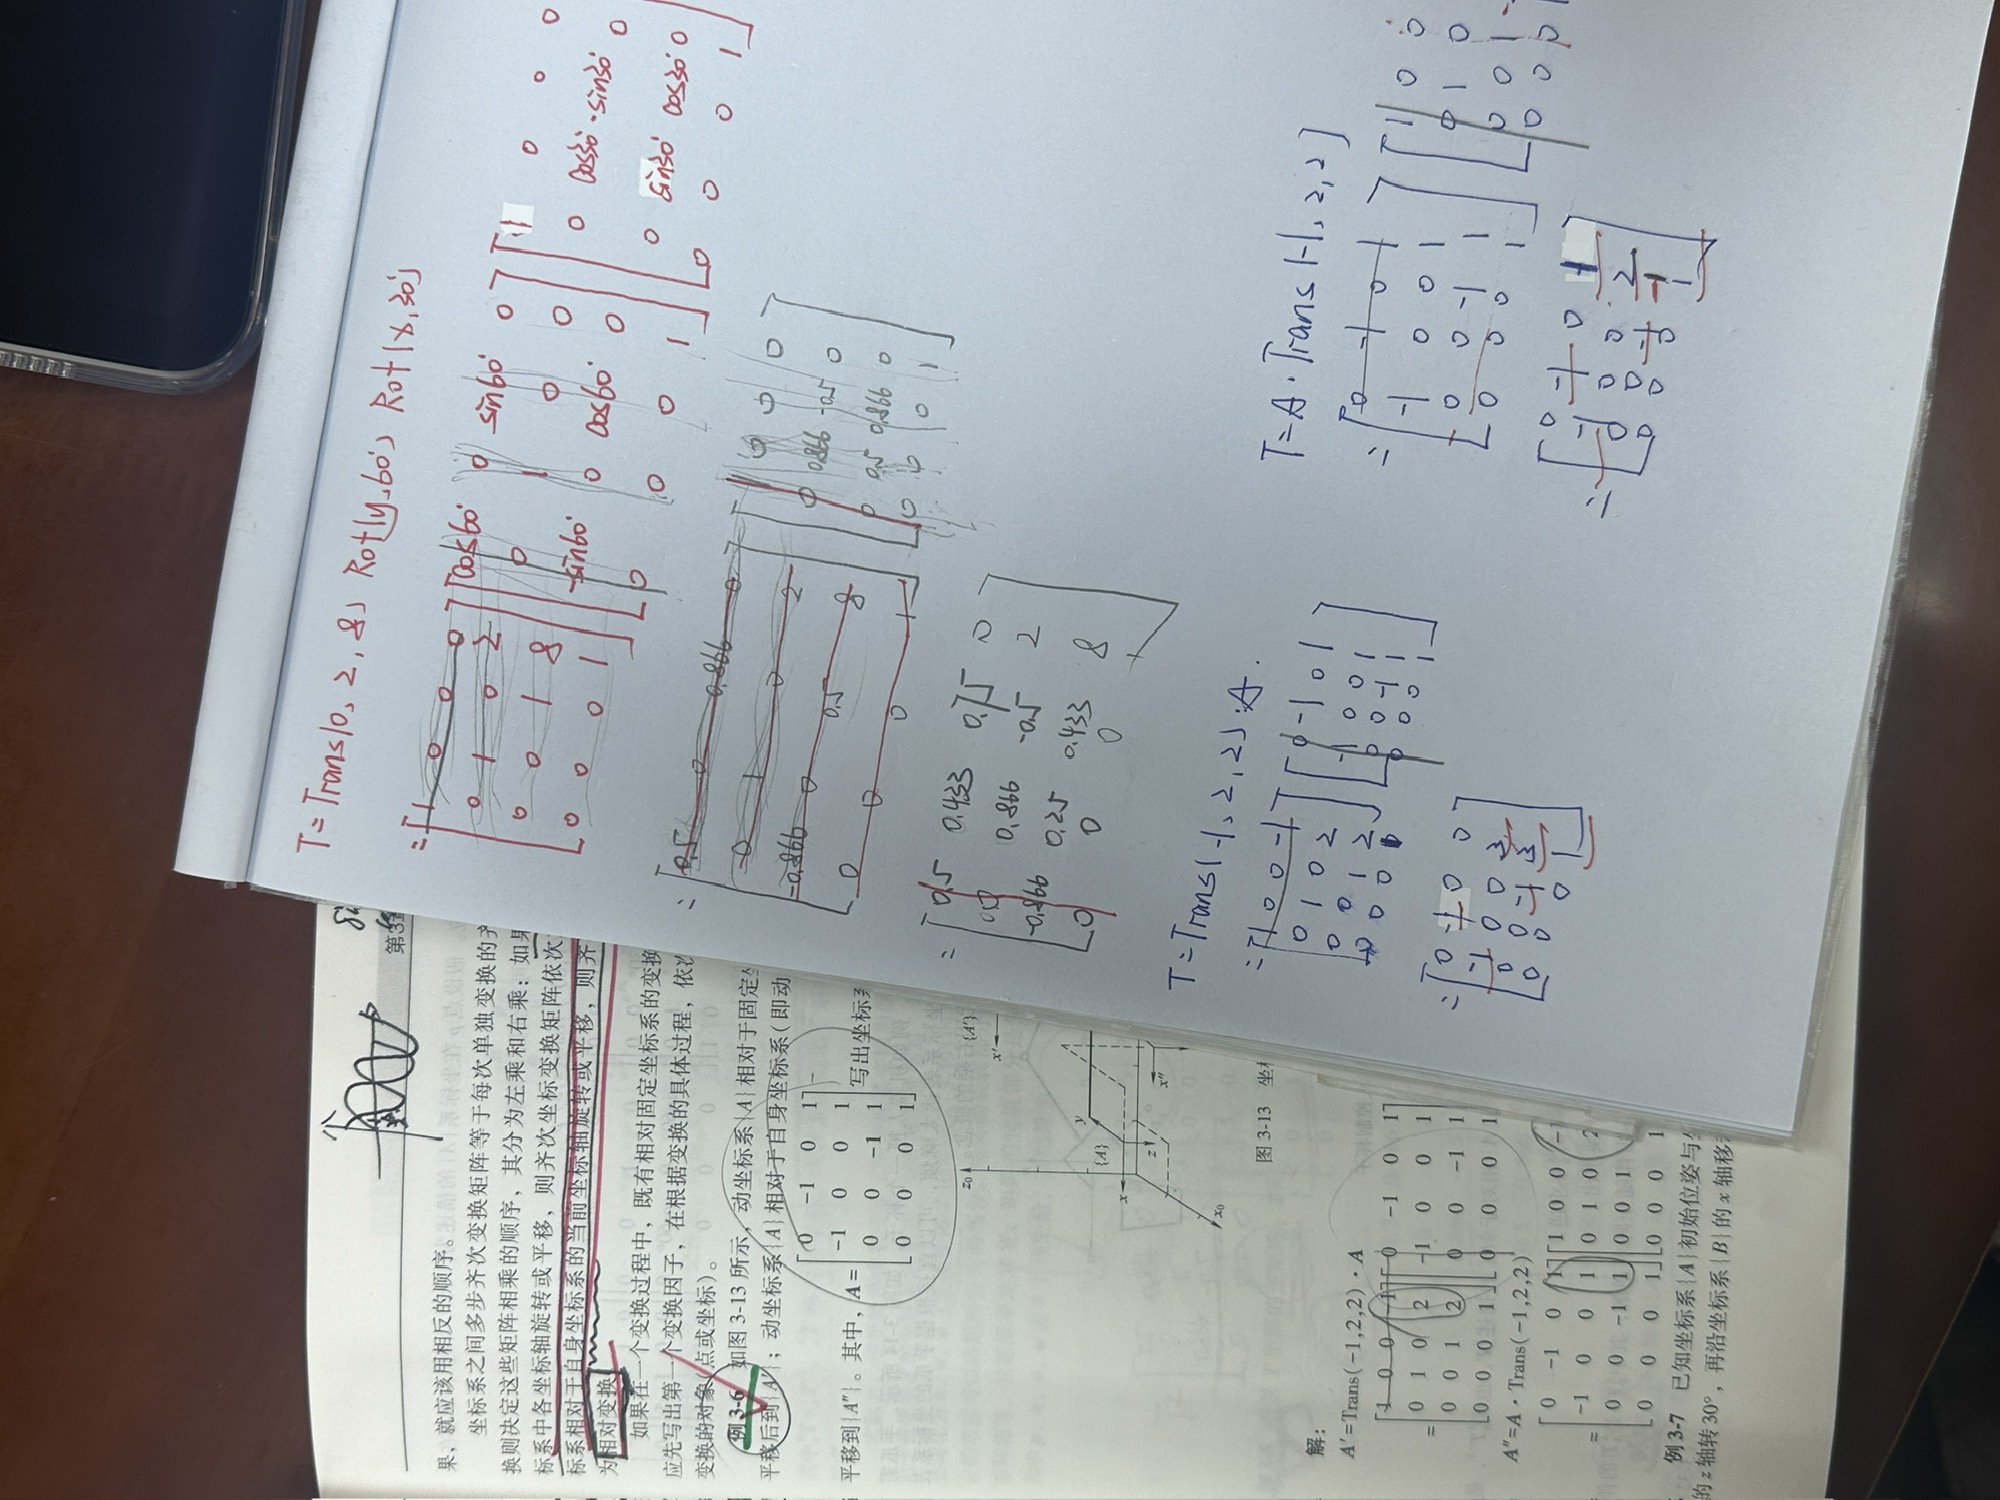 T=Trans(0,2,8) Rot(y,60°) Rot(x,30°)
=[1 0 0 0] [cos60° 0 sin60° 0] [1 0 0 0]
0 1 0 2 0 1 0 0 0 cos30° -sin30° 0
0 0 1 8 -sin60° 0 cos60° 0 0 sin30° cos30° 0
0 0 0 1 0 0 0 1 0 0 0 1
=[0.5 0 0.866 0] [0 0 0
0 1 0 2 0 0.866 -0.5 0
-0.866 0 0.5 8 0 0.5 0.866 0
0 0 0 1 0 0 0 1]
=[0.5 0.433 0.75 0
0.0 0.866 -0.5 2
-0.866 0.25 0.433 8
0 0 0 1]
T=Trans(-1,2,2)·A.
=[1 0 0 -1] [0 -1 0 1
0 1 0 2 -1 0 0 1
0 0 1 2 0 0 -1 1
0 0 0 0 0 0 1]
=[0 -1 0 0
-1 0 0 3
0 0 -1 3
0 0 0 1]
T=A·Trans(-1,2,2)
=[0 -1 0 1] [1 0 0
-1 0 0 1 0 1 0
0 0 -1 1 0 0 1
0 0 0 1 0 0 0
=[0 -1 0
-1 0 0 2
0 0 -1 -1
0 0 0 1]
第3章
果，就应该用相反的顺序。
坐标系之间多步齐次变换矩阵等于每次单独变换的齐
换则决定这些矩阵相乘的顺序，其分为左乘和右乘：如果
标系中各坐标轴旋转或平移，则齐次坐标变换矩阵依次
标系相对于自身坐标系的当前坐标轴旋转或平移，则齐
为相对变换
如果在一个变换过程中，既有相对固定坐标系的变换
应先写出第一个变换因子，在根据变换的具体过程，依次
变换的对象(点或坐标)。
例 3-6 如图 3-13 所示，动坐标系{A}相对于固定坐
平移后到{A′}；动坐标系{A}相对于自身坐标系(即动
平移到{A″}。其中，A=[0 -1 0 1 写出坐标系
-1 0 0 1
0 0 -1 1
0 0 0 1]
z₀
{A}
y
x
z
x₀
{A′}
x′
x″
图 3-13 坐标
解：
A′=Trans(-1,2,2)·A
=[1 0 0 -1][0 -1 0 1]
0 1 0 2 -1 0 0 1
0 0 1 2 0 0 -1 1
0 0 0 1 0 0 0 1
A″=A·Trans(-1,2,2)
=[0 -1 0 1][1 0 0 -1
-1 0 0 1 0 1 0 2
0 0 -1 1 0 0 1
0 0 0 1 0 0 0 1
例 3-7 已知坐标系{A}初始位姿与
的z轴转30°，再沿坐标系{B}的x轴移